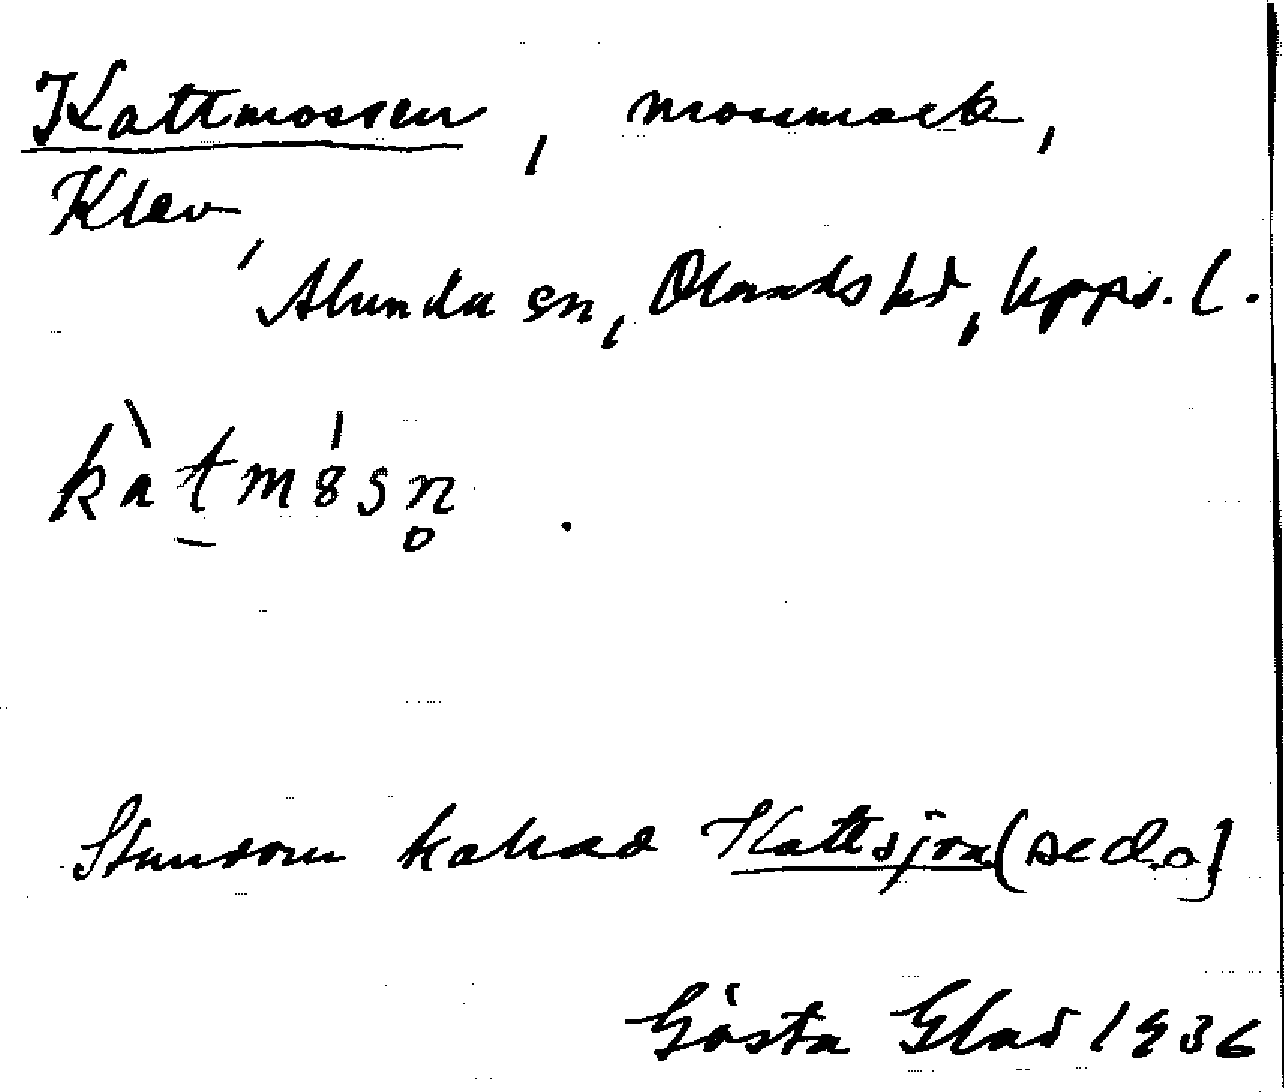 Kattmossen, mossmark,
Klev,
Alunda sn, Olands hd, Upps. l.
kàtmósn̥
Stundom kallad Kattsjön (se d.o)
Gösta Glad 1936